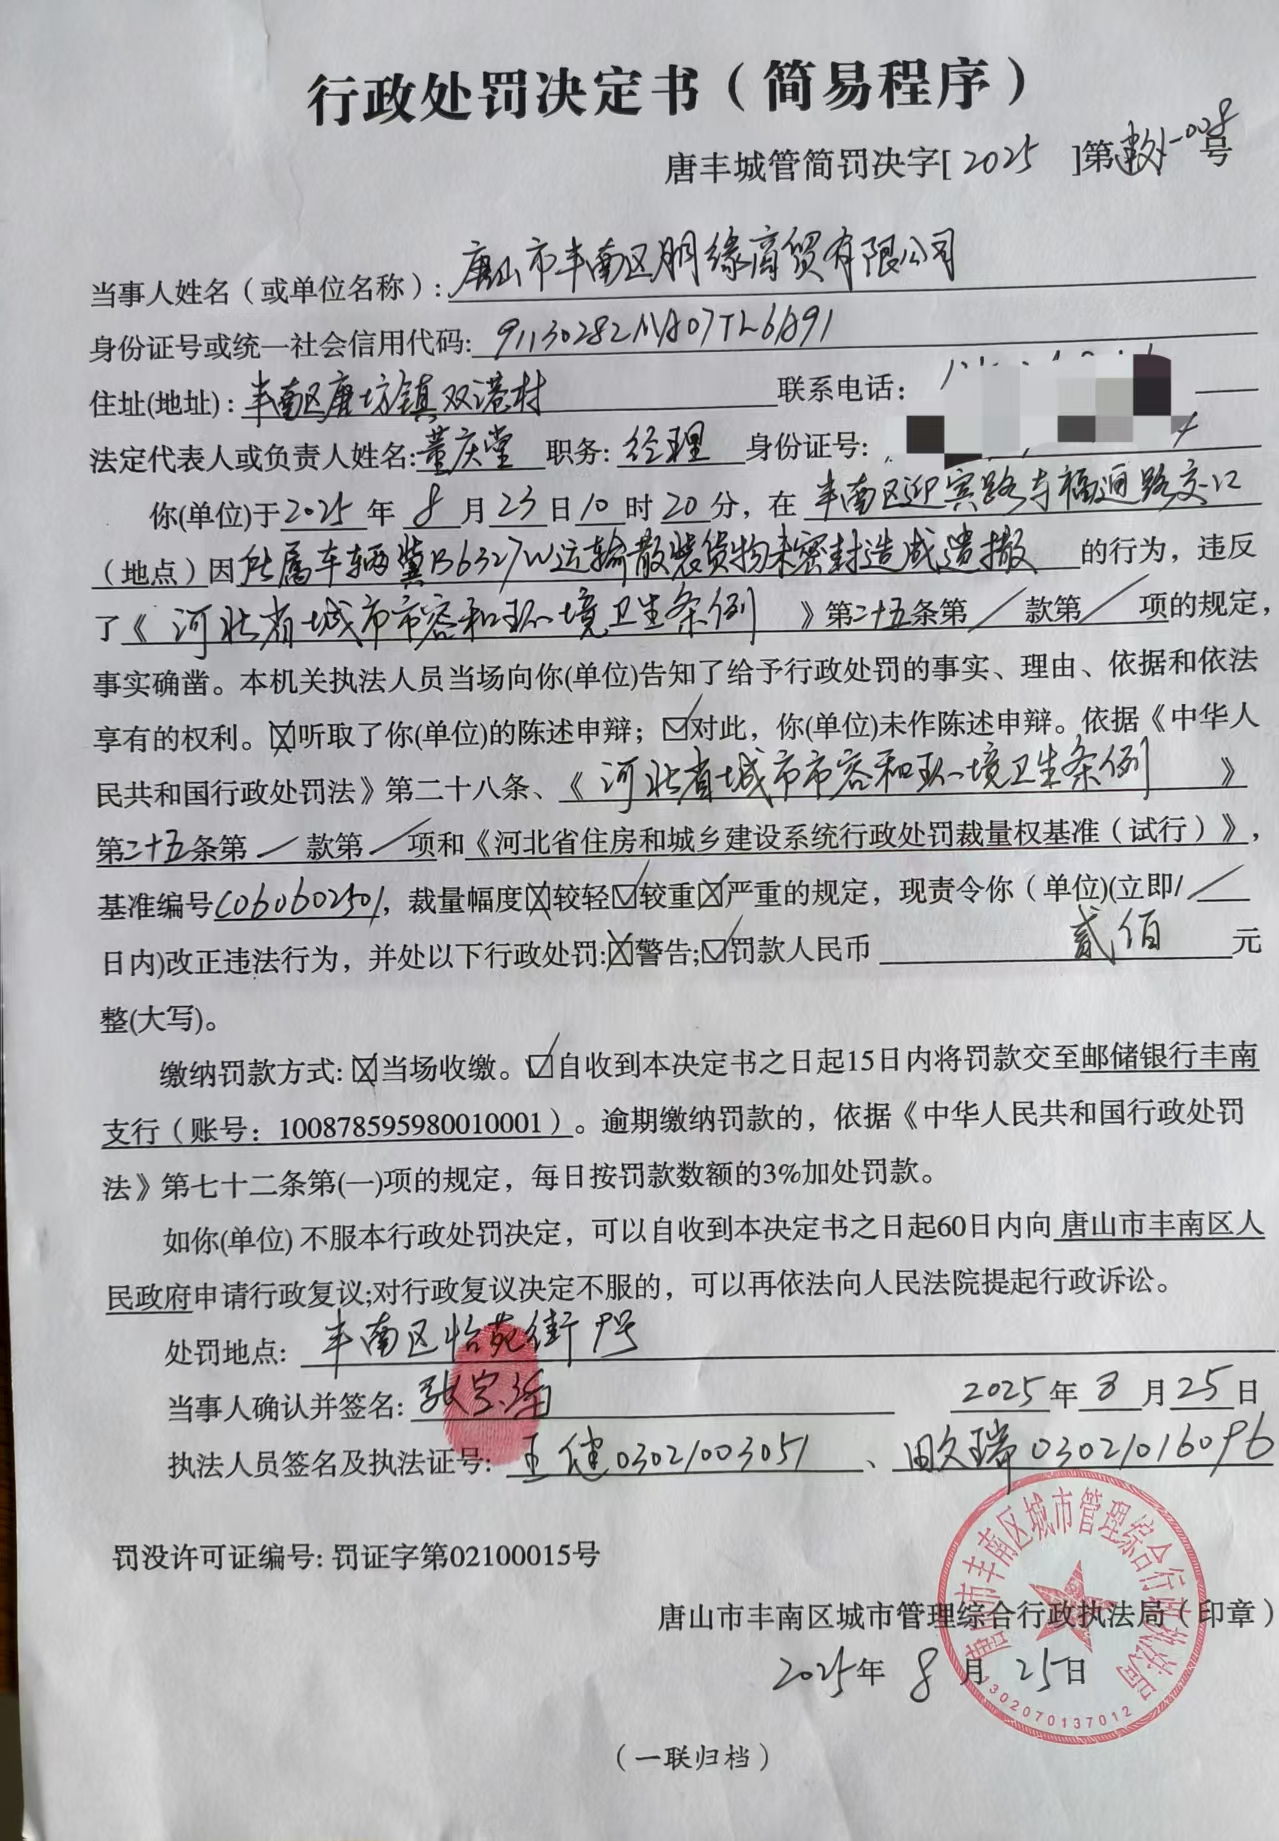 行政处罚决定书（简易程序）
唐丰城管简罚决字[ 2025 ]第 -008号
当事人姓名（或单位名称）: 唐山市丰南区朋缘商贸有限公司
身份证号或统一社会信用代码: 91130282MA07TL6A91
住址(地址): 丰南区唐坊镇双港村 联系电话:
法定代表人或负责人姓名: 董庆堂 职务: 经理 身份证号: 4
你(单位)于2025年 8 月23日10时20分，在 丰南区迎宾路与福通路交口
（地点）因所属车辆冀B6327W运输散装货物未密封造成遗撒 的行为，违反
了《 河北省城市市容和环境卫生条例 》第二十五条第 / 款第 / 项的规定，
事实确凿。本机关执法人员当场向你(单位)告知了给予行政处罚的事实、理由、依据和依法
享有的权利。☒听取了你(单位)的陈述申辩；☑对此，你(单位)未作陈述申辩。依据《中华人
民共和国行政处罚法》第二十八条、《 河北省城市市容和环境卫生条例 》
第二十五条第 / 款第 / 项和《河北省住房和城乡建设系统行政处罚裁量权基准（试行）》，
基准编号C060602501，裁量幅度☒较轻☑较重☒严重的规定，现责令你（单位)(立即/ /
日内)改正违法行为，并处以下行政处罚:☒警告;☑罚款人民币 贰佰 元
整(大写)。
缴纳罚款方式: ☒当场收缴。☑自收到本决定书之日起15日内将罚款交至邮储银行丰南
支行（账号：100878595980010001）。逾期缴纳罚款的，依据《中华人民共和国行政处罚
法》第七十二条第(一)项的规定，每日按罚款数额的3%加处罚款。
如你(单位) 不服本行政处罚决定，可以自收到本决定书之日起60日内向 唐山市丰南区人
民政府申请行政复议;对行政复议决定不服的，可以再依法向人民法院提起行政诉讼。
处罚地点: 丰南区怡苑街9号
当事人确认并签名: 张宗 2025年 8 月25日
执法人员签名及执法证号: 王健03021003051 、 田久瑞03021016096
罚没许可证编号: 罚证字第02100015号
唐山市丰南区城市管理综合行政执法局（印章）
2025年 8 月 25日
唐山市丰南区城市管理综合行政执法局
1302070137012
（一联归档）